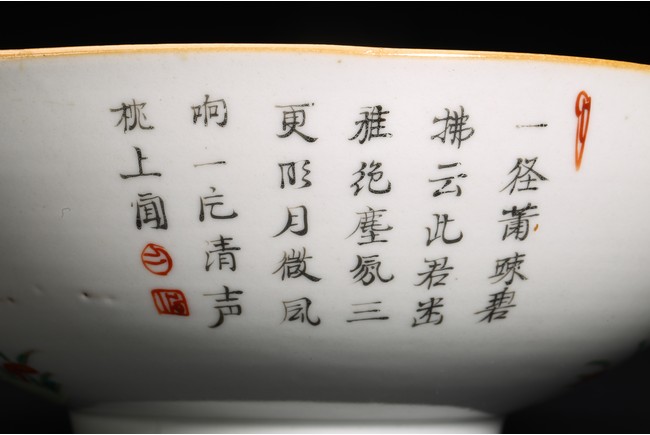 一径萧疎碧
拂云此君幽
雅绝塵氛三
更明月微风
响一片清声
枕上闻